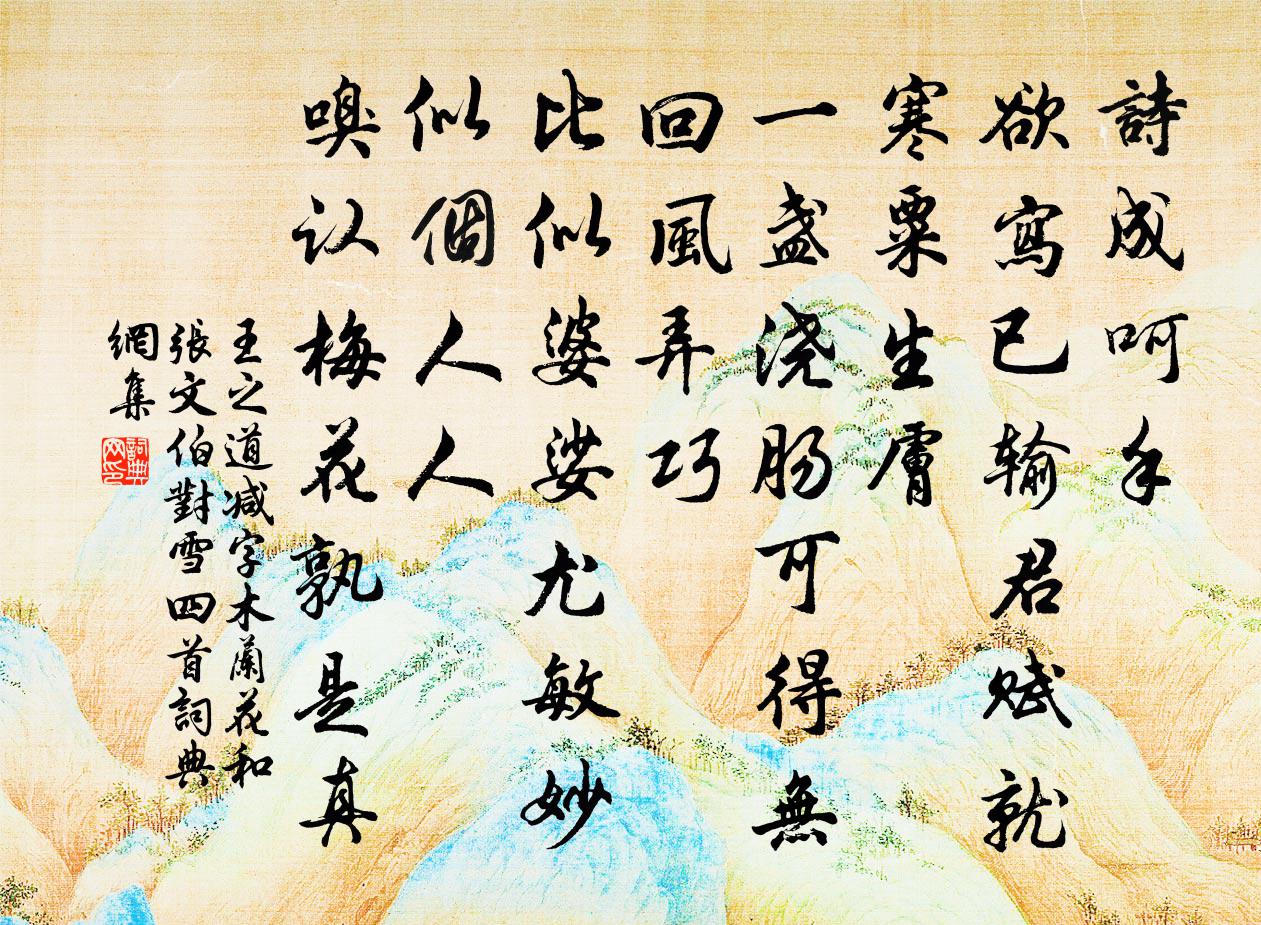 詩成呵手
欲寫已输君赋就
寒粟生膚
一盏浇肠可得無
回風弄巧
比似婆娑尤敏妙
似個人人
嗅认梅花孰是真
王之道减字木蘭花和
張文伯對雪四首詞典
網集
詞典
网印